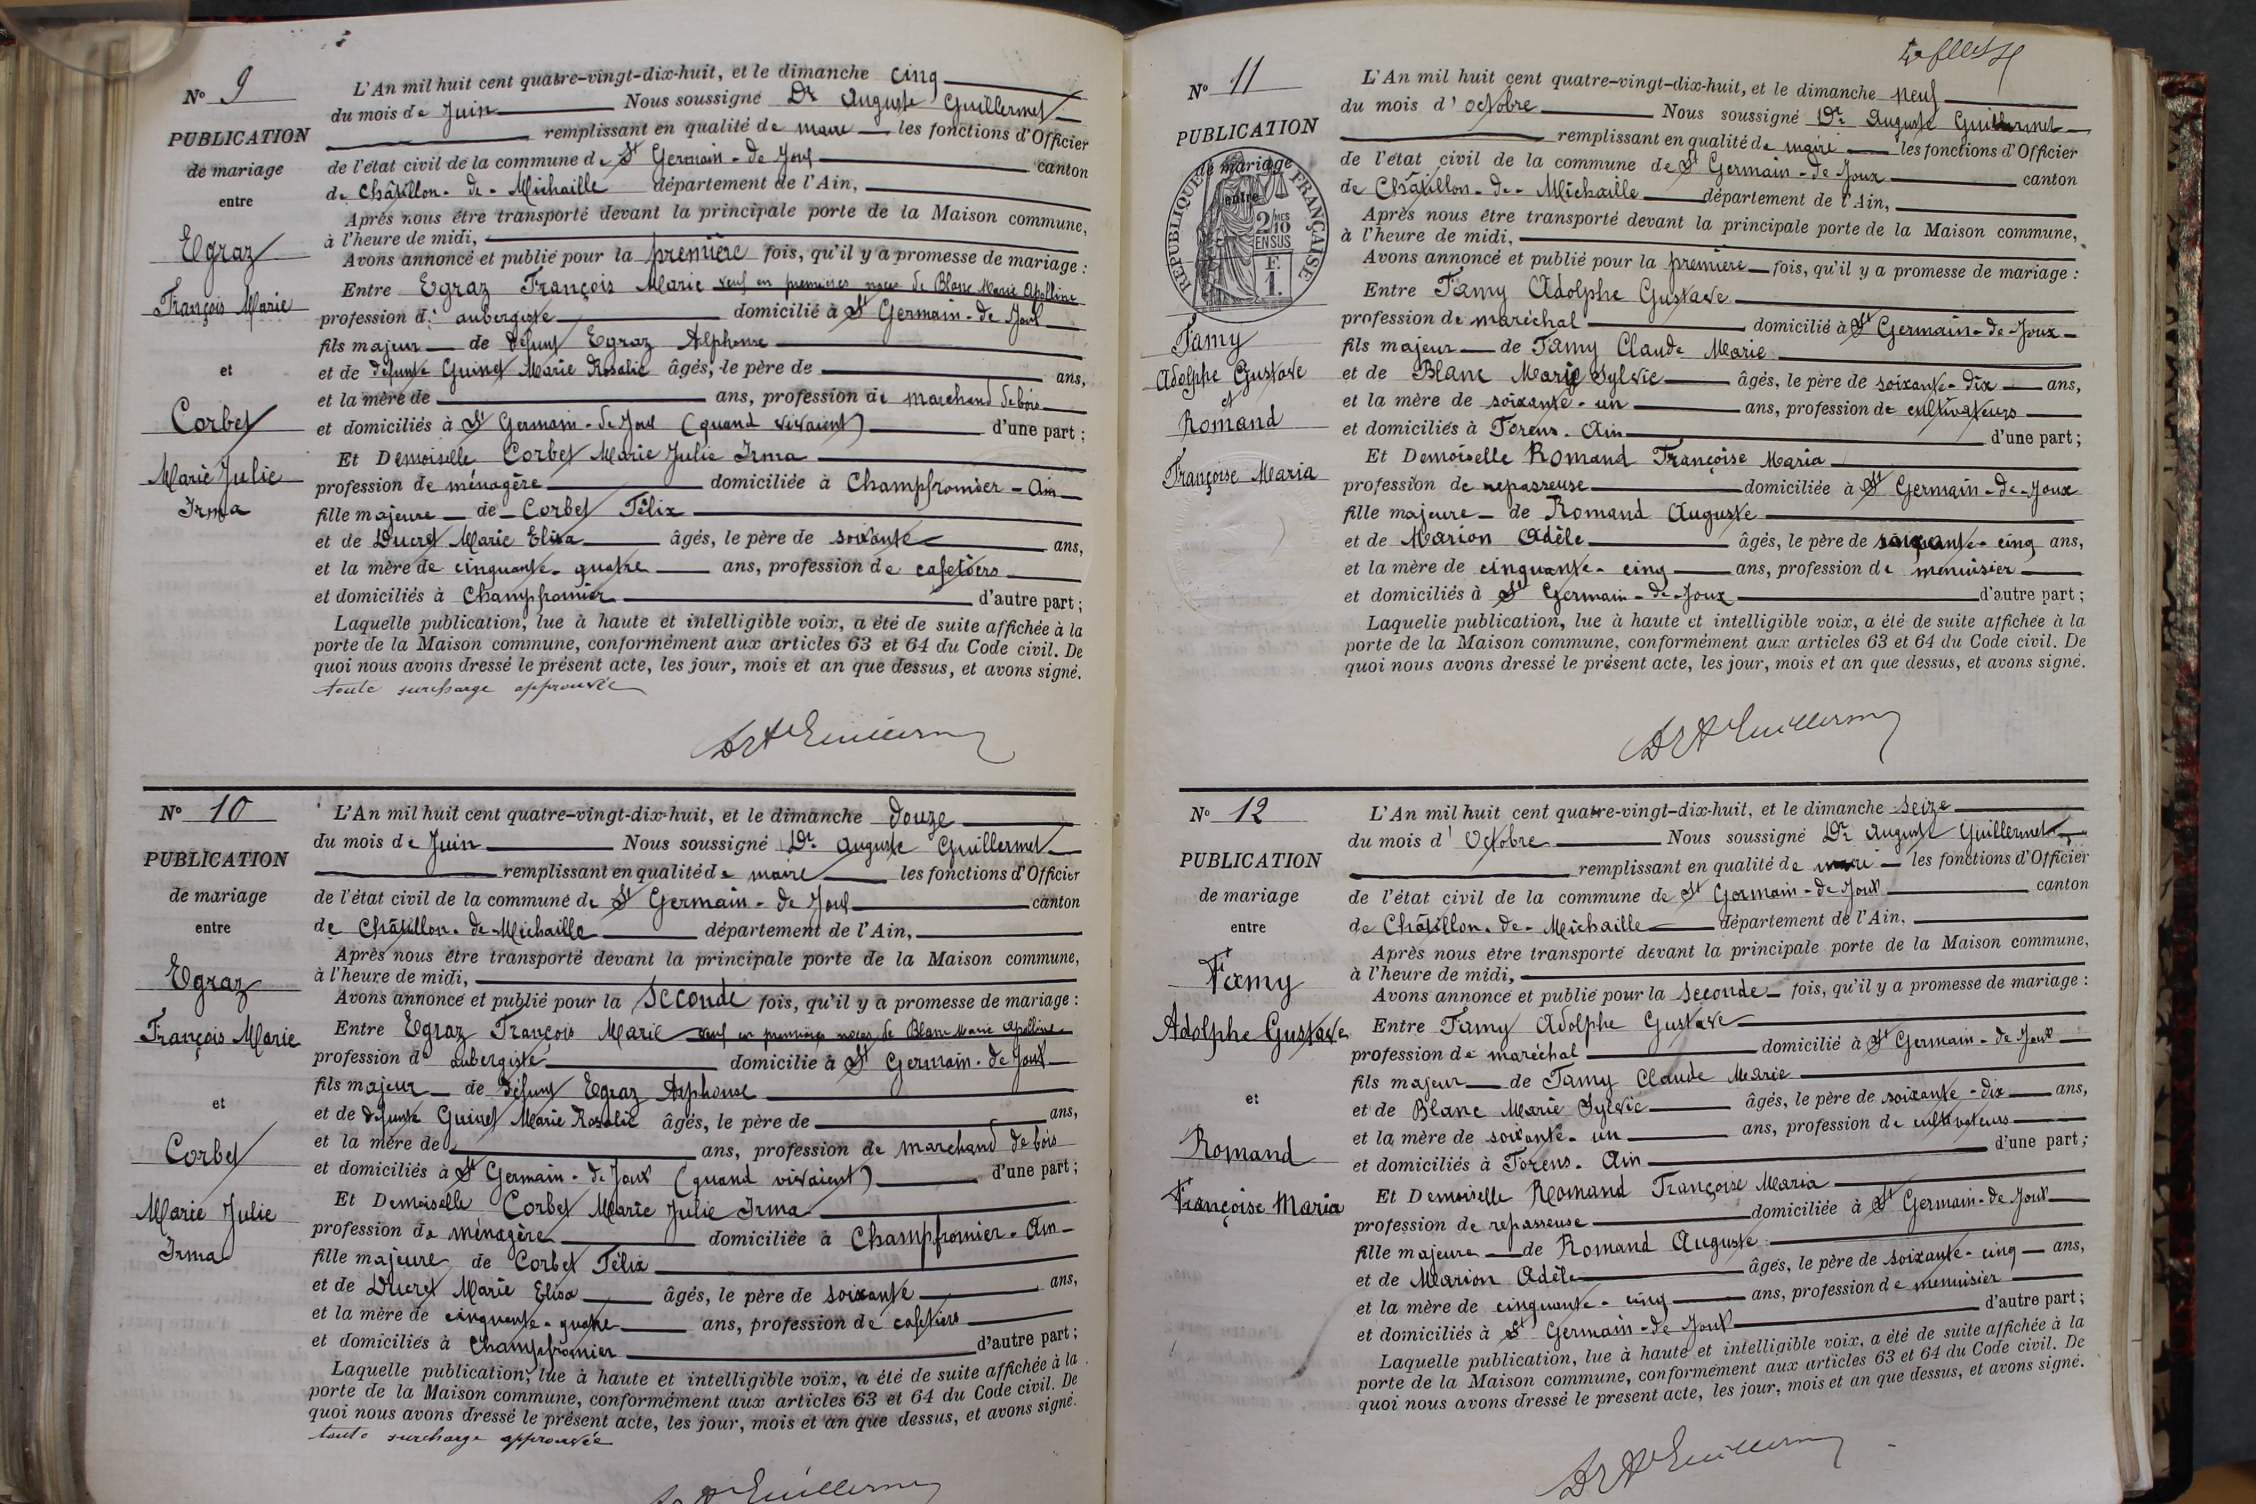 N° 9
PUBLICATION
de mariage
entre
Egraz
François Marie
et
Corbet
Marie Julie
Irma
L'An mil huit cent quatre-vingt-dix-huit, et le dimanche cinq
du mois de Juin Nous soussigné Dr Auguste Guillermet
remplissant en qualité de maire les fonctions d'Officier
de l'état civil de la commune de St Germain-de-Joux canton
de Châtillon-de-Michaille département de l'Ain,
Après nous être transporté devant la principale porte de la Maison commune,
à l'heure de midi,
Avons annoncé et publié pour la première fois, qu'il y a promesse de mariage :
Entre Egraz François Marie veuf en premières noces de Blanc Marie Apolline
profession d' aubergiste domicilié à St Germain-de-Joux
fils majeur de défunt Egraz Alphonse
et de défunte Guinet Marie Rosalie âgés, le père de ans,
et la mère de ans, profession de marchand de bois
et domiciliés à St Germain-de-Joux (quand vivaient) d'une part ;
Et Demoiselle Corbet Marie Julie Irma
profession de ménagère domiciliée à Champfromier - Ain
fille majeure de Corbet Félix
et de Ducret Marie Elisa âgés, le père de soixante ans,
et la mère de cinquante-quatre ans, profession de cafetiers
et domiciliés à Champfromier d'autre part ;
Laquelle publication, lue à haute et intelligible voix, a été de suite affichée à la
porte de la Maison commune, conformément aux articles 63 et 64 du Code civil. De
quoi nous avons dressé le présent acte, les jour, mois et an que dessus, et avons signé.
toute surcharge approuvée
Dr Ate Guillermet
N° 10
PUBLICATION
de mariage
entre
Egraz
François Marie
et
Corbet
Marie Julie
Irma
L'An mil huit cent quatre-vingt-dix-huit, et le dimanche douze
du mois de Juin Nous soussigné Dr Auguste Guillermet
remplissant en qualité de maire les fonctions d'Officier
de l'état civil de la commune de St Germain-de-Joux canton
de Châtillon-de-Michaille département de l'Ain,
Après nous être transporté devant la principale porte de la Maison commune,
à l'heure de midi,
Avons annoncé et publié pour la seconde fois, qu'il y a promesse de mariage :
Entre Egraz François Marie veuf en premières noces de Blanc Marie Apolline
profession d' aubergiste domicilié à St Germain-de-Joux
fils majeur de défunt Egraz Alphonse
et de défunte Guinet Marie Rosalie âgés, le père de ans,
et la mère de ans, profession de marchand de bois
et domiciliés à St Germain-de-Joux (quand vivaient) d'une part ;
Et Demoiselle Corbet Marie Julie Irma
profession de ménagère domiciliée à Champfromier - Ain
fille majeure de Corbet Félix
et de Ducret Marie Elisa âgés, le père de soixante ans,
et la mère de cinquante-quatre ans, profession de cafetiers
et domiciliés à Champfromier d'autre part ;
Laquelle publication, lue à haute et intelligible voix, a été de suite affichée à la
porte de la Maison commune, conformément aux articles 63 et 64 du Code civil. De
quoi nous avons dressé le présent acte, les jour, mois et an que dessus, et avons signé.
toute surcharge approuvée
Dr Ate Guillermet
N° 11
PUBLICATION
de mariage
entre
RÉPUBLIQUE FRANÇAISE
2/10 MES
EN SUS
F.
1.
Famy
Adolphe Gustave
et
Romand
Françoise Maria
L'An mil huit cent quatre-vingt-dix-huit, et le dimanche neuf
du mois d' Octobre Nous soussigné Dr Auguste Guillermet
remplissant en qualité de maire les fonctions d'Officier
de l'état civil de la commune de St Germain-de-Joux canton
de Châtillon-de-Michaille département de l'Ain,
Après nous être transporté devant la principale porte de la Maison commune,
à l'heure de midi,
Avons annoncé et publié pour la première fois, qu'il y a promesse de mariage :
Entre Famy Adolphe Gustave
profession de maréchal domicilié à St Germain-de-Joux
fils majeur de Famy Claude Marie
et de Blanc Marie Sylvie âgés, le père de soixante-dix ans,
et la mère de soixante-un ans, profession de cultivateurs
et domiciliés à Forens. Ain d'une part ;
Et Demoiselle Romand Françoise Maria
profession de repasseuse domiciliée à St Germain-de-Joux
fille majeure de Romand Auguste
et de Marion Adèle âgés, le père de soixante-cinq ans,
et la mère de cinquante-cinq ans, profession de menuisier
et domiciliés à St Germain-de-Joux d'autre part ;
Laquelle publication, lue à haute et intelligible voix, a été de suite affichée à la
porte de la Maison commune, conformément aux articles 63 et 64 du Code civil. De
quoi nous avons dressé le présent acte, les jour, mois et an que dessus, et avons signé.
Dr Ate Guillermet
N° 12
PUBLICATION
de mariage
entre
Famy
Adolphe Gustave
et
Romand
Françoise Maria
L'An mil huit cent quatre-vingt-dix-huit, et le dimanche seize
du mois d' Octobre Nous soussigné Dr Auguste Guillermet
remplissant en qualité de maire les fonctions d'Officier
de l'état civil de la commune de St Germain-de-Joux canton
de Châtillon-de-Michaille département de l'Ain,
Après nous être transporté devant la principale porte de la Maison commune,
à l'heure de midi,
Avons annoncé et publié pour la seconde fois, qu'il y a promesse de mariage :
Entre Famy Adolphe Gustave
profession de maréchal domicilié à St Germain-de-Joux
fils majeur de Famy Claude Marie
et de Blanc Marie Sylvie âgés, le père de soixante-dix ans,
et la mère de soixante-un ans, profession de cultivateurs
et domiciliés à Forens. Ain d'une part ;
Et Demoiselle Romand Françoise Maria
profession de repasseuse domiciliée à St Germain-de-Joux
fille majeure de Romand Auguste
et de Marion Adèle âgés, le père de soixante-cinq ans,
et la mère de cinquante-cinq ans, profession de menuisier
et domiciliés à St Germain-de-Joux d'autre part ;
Laquelle publication, lue à haute et intelligible voix, a été de suite affichée à la
porte de la Maison commune, conformément aux articles 63 et 64 du Code civil. De
quoi nous avons dressé le présent acte, les jour, mois et an que dessus, et avons signé.
Dr Ate Guillermet